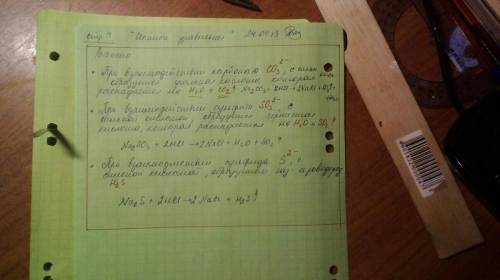 стр 9 "Ионные уравнения" 24.04.13
Важно
• При взаимодействии карбонат CO₃²⁻, с сильн
образуется угольная кислота, которая
распадается на H₂O + CO₂↑ Na₂CO₃ + 2HCl → 2NaCl + CO₂↑
• При взаимодействии сульфита SO₃²⁻ с
сильной кислотой, образуется сернистая
кислота, которая распадается на H₂O и SO₂↑
Na₂SO₃ + 2HCl → 2NaCl + H₂O + SO₂↑
• При взаимодействии сульфида S²⁻ с
сильной кислотой, образуется газ сероводород
H₂S
Na₂S + 2HCl → 2NaCl + H₂S↑